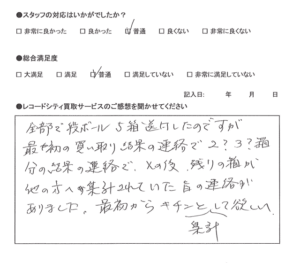 ●スタッフの対応はいかがでしたか？
□ 非常に良かった □ 良かった □ 普通 □ 良くない □ 非常に良くない
●総合満足度
□ 大満足 □ 満足 □ 普通 □ 満足していない □ 非常に満足していない
記入日: 年 月 日
●レコードシティ買取サービスのご感想を聞かせてください
全部で段ボール5箱送付したのですが
最初の買い取り結果の連絡で2?3?箱
分の結果の連絡で、その後、残りの箱が
他の方へ集計されていた旨の連絡が
ありました。最初からキチンとして欲しい
集計